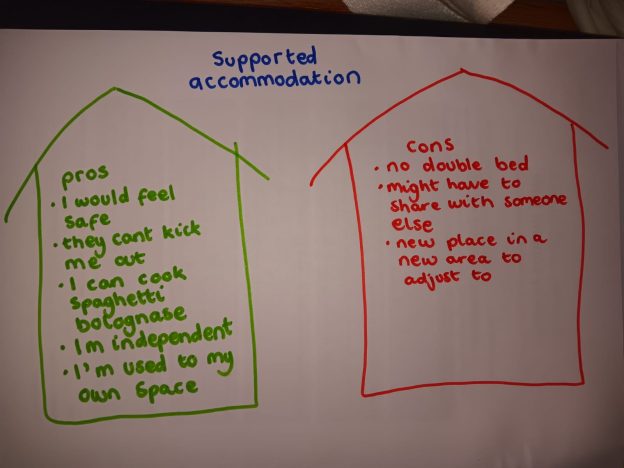 Supported
accommodation
pros
• I would feel
safe
• they cant kick
me out
• I can cook
spaghetti
bolognase
• Im independent
• I'm used to my
own space
cons
• no double bed
• might have to
share with someone
else
• new place in a
new area to
adjust to